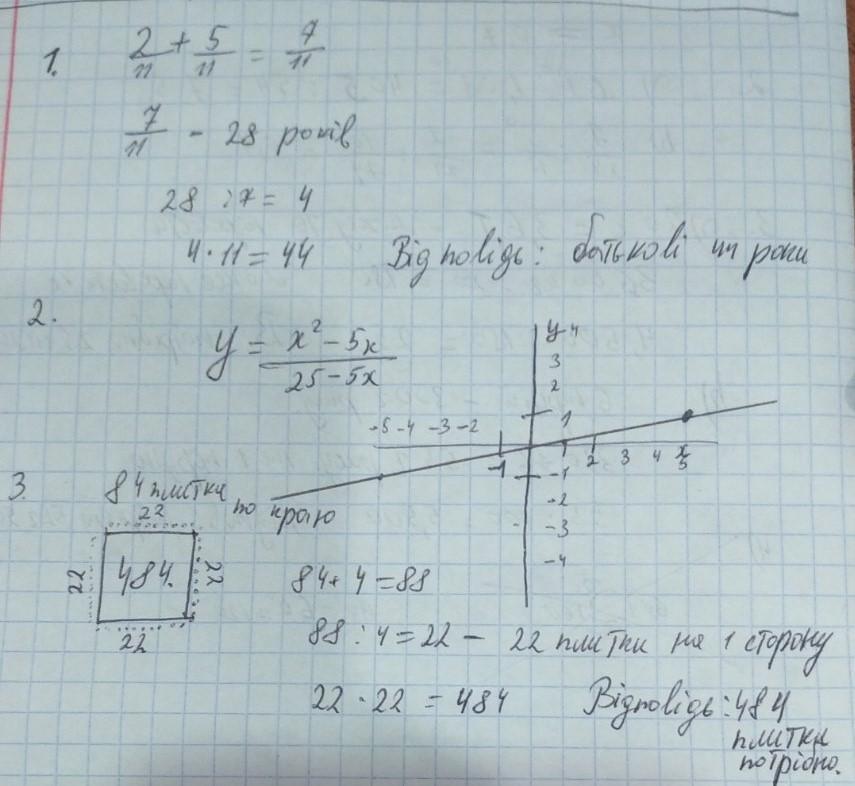 1. 2/11 + 5/11 = 7/11
7/11 - 28 років
28 : 7 = 4
4 · 11 = 44 Відповідь: батькові 44 роки
2.
y = (x² - 5x)/(25 - 5x)
y 4
3
2
1
-5 -4 -3 -2
-1 1 2 3 4 x
5
-1
-2
-3
-4
3. 84 плитки по краю
22
22 484. 22
22
84 + 4 = 88
88 : 4 = 22 - 22 плитки на 1 сторону
22 · 22 = 484 Відповідь: 484
плитки
потрібно.